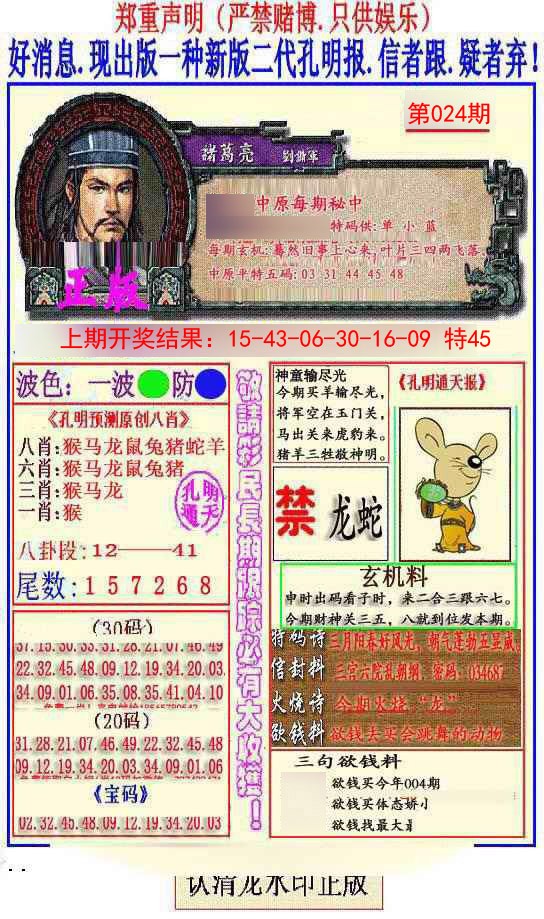 郑重声明（严禁赌博.只供娱乐）
好消息.现出版一种新版二代孔明报.信者跟.疑者弃！
第024期
諸葛亮 劉備軍
中原每期秘中
特码供:单 小 蓝
每期玄机:蓦然旧事上心来,叶片三四两飞落.
中原平特五码:03 31 44 45 48
正版
上期开奖结果：15-43-06-30-16-09 特45
波色：一波 防
《孔明预测原创八肖》
八肖:猴马龙鼠兔猪蛇羊
六肖:猴马龙鼠兔猪
三肖:猴马龙
一肖:猴
孔明通天
八卦段:12——41
尾数:157268
(30码)
37.15.30.33.31.28.21.07.46.49
22.32.45.48.09.12.19.34.20.03
34.09.01.06.35.08.35.41.04.10
(20码)
31.28.21.07.46.49.22.32.45.48
09.12.19.34.20.03.34.09.01.06
《宝码》
02.32.45.48.09.12.19.34.20.03
敬請彩民長期跟踪必有大收獲！
神童输尽光
今期买羊输尽光，
将军空在玉门关，
马出关来虎豹来。
猪羊三牲敬神明。
《孔明通天报》
禁 龙蛇
玄机料
申时出码看子时，来二合三跟六七。
今期财神关三五，八就到位发本期。
特码诗 三月阳春好风光，朝气蓬勃五显威
信封料 三宫六院乱朝纲，密码：034687
火烧诗 今期火烧.“龙”
欲钱料 欲钱去买会跳舞的动物
三句欲钱料
欲钱买今年004期
欲钱买体态娇小
欲钱找最大最
认清龙水印正版